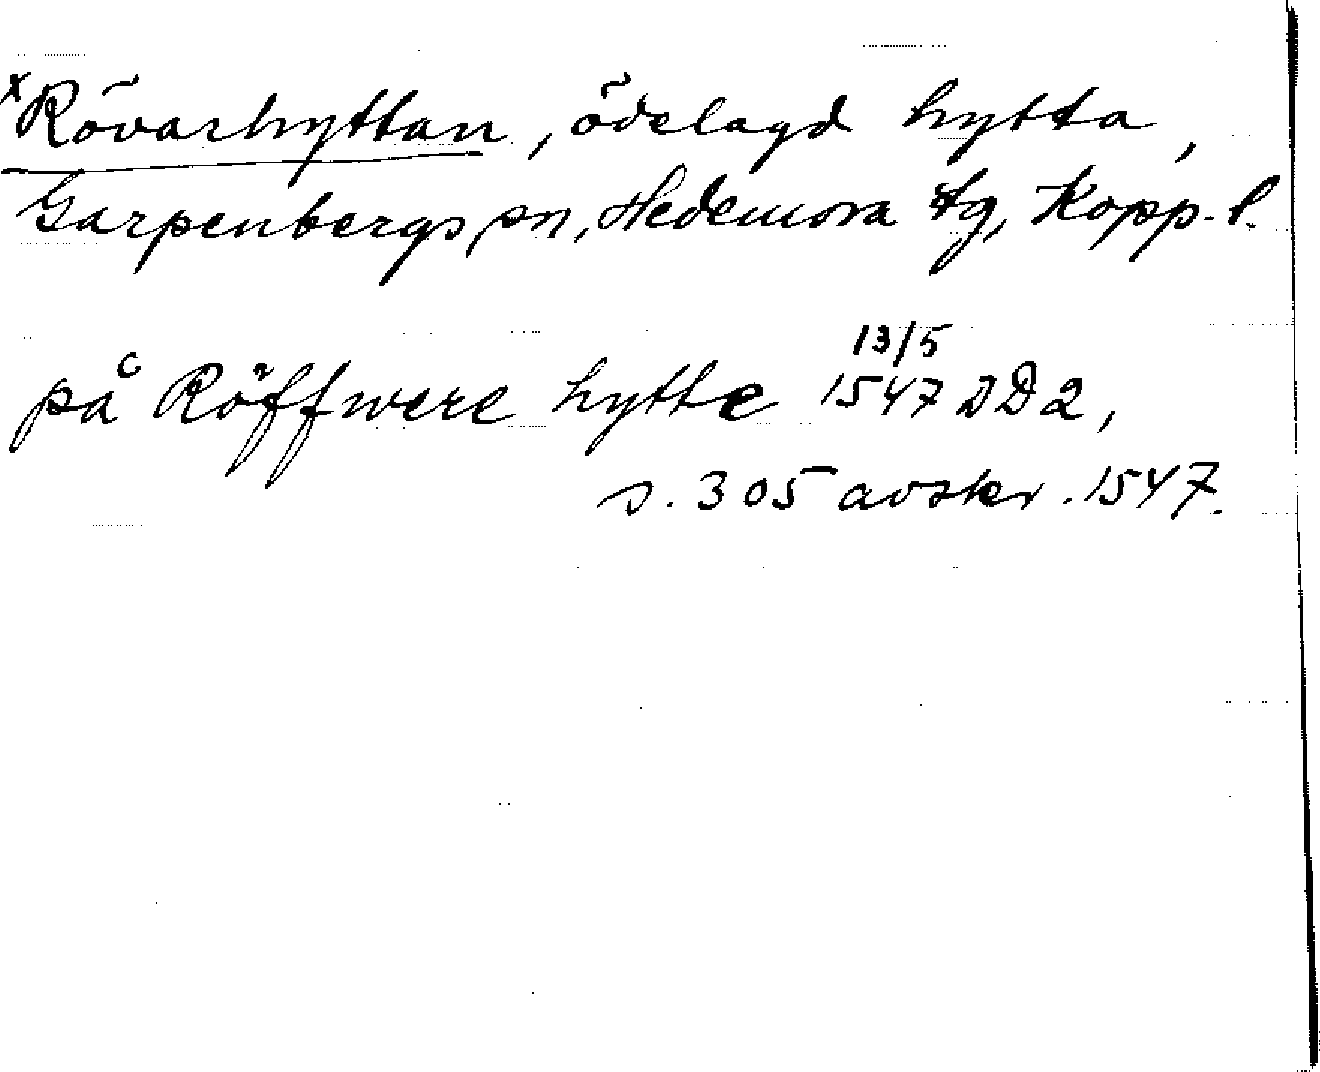 x Rövarhyttan, ödelagd hytta,
Garpenbergs sn, Hedemora tg, Kopp. l.
13/5
på Röffwere hytte 1547 DD2,
s. 305 avskr. 1547.